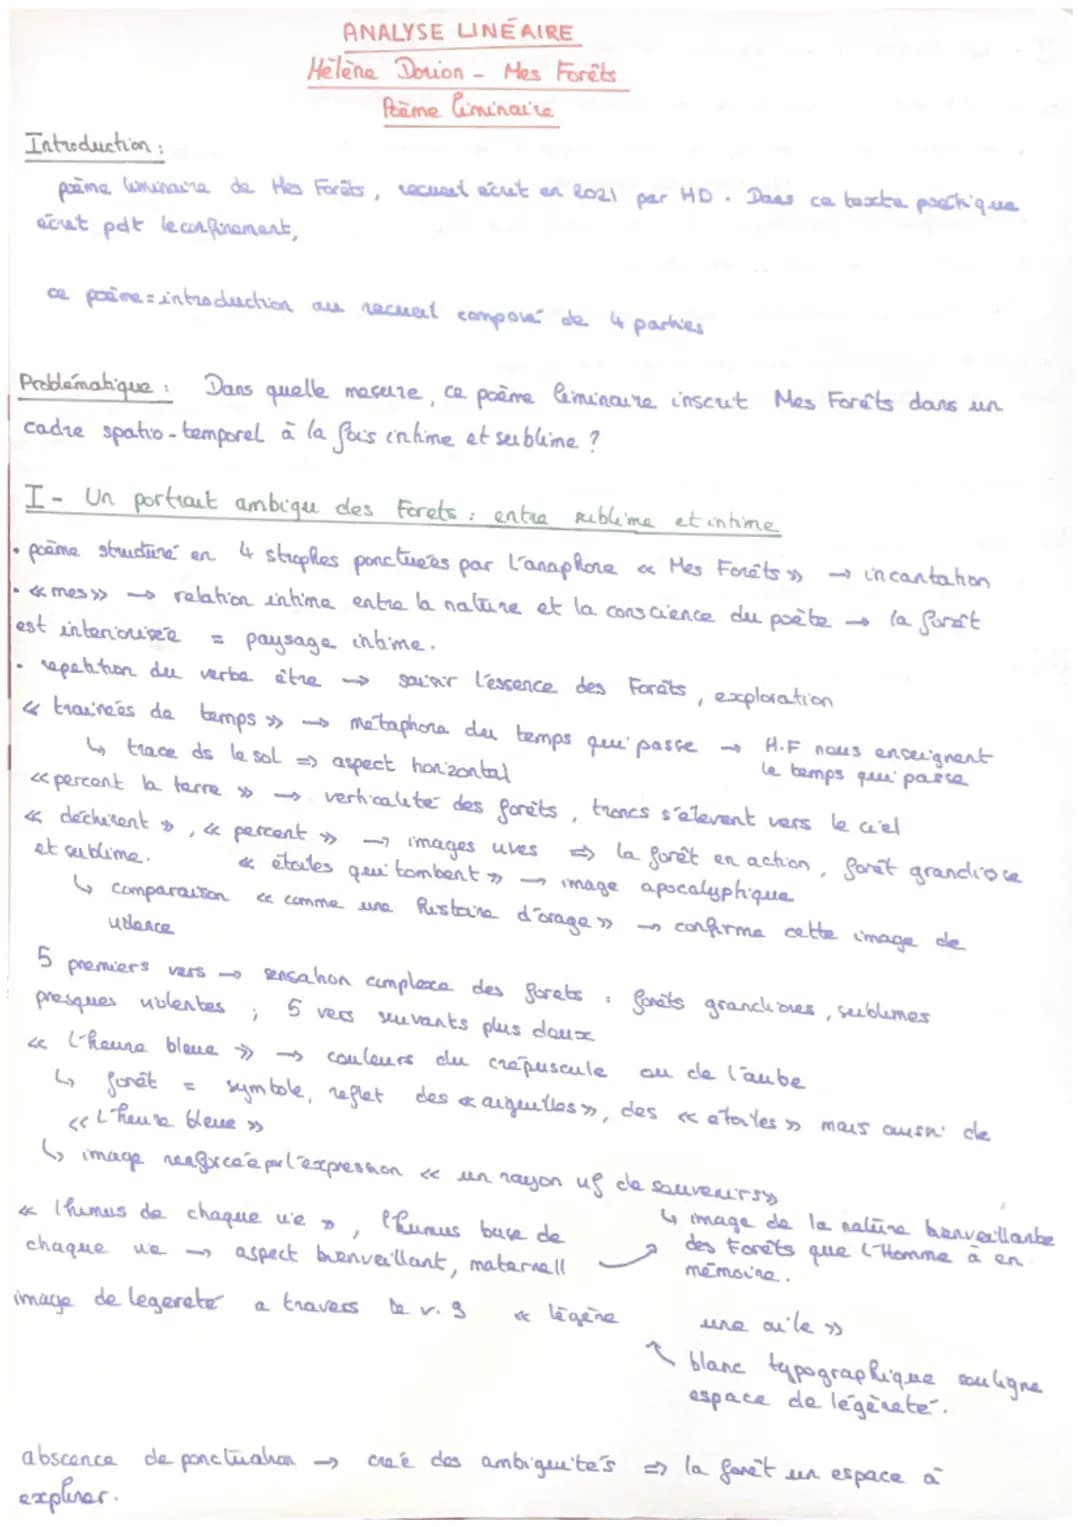 ANALYSE LINÉAIRE
Hélène Dorion - Mes Forêts
Poème liminaire
Introduction :
poème liminaire de Mes Forêts, recueil écrit en 2021 par HD. Dans ce texte poétique
écrit pdt le confinement,
ce poème = introduction au recueil composé de 4 parties
Problématique : Dans quelle mesure, ce poème liminaire inscrit Mes Forêts dans un
cadre spatio-temporel à la fois intime et sublime ?
I - Un portrait ambigu des Forets : entre sublime et intime
• poème structuré en 4 strophes ponctuées par l'anaphore « Mes Forêts » → incantation
• « mes » → relation intime entre la nature et la conscience du poète → la forêt
est interiorisée = paysage intime.
• repetition du verbe être → saisir l'essence des Forêts, exploration
« trainées de temps » → métaphore du temps qui passe → H.F nous enseignent
le temps qui passe
↳ trace ds le sol => aspect horizontal
« percent la terre » → verticalité des forêts, troncs s'élevent vers le ciel
« déchirent », « percent » → images vives => la forêt en action, forêt grandiose
et sublime. « étoiles qui tombent » → image apocalyphique
↳ comparaison « comme une histoire d'orage » → confirme cette image de
violence
5 premiers vers → sensation complexe des forets : forêts grandioses, sublimes
presques violentes ; 5 vers suivants plus doux
« L'heure bleue » → couleurs du crépuscule ou de l'aube
↳ forêt = symbole, reflet des « aiguilles », des « etoiles » mais aussi de
« L'heure bleue »
↳ image renforcée par l'expression « un rayon vif de souvenirs »
↳ image de la nature bienveillante
des Forêts que l'Homme à en
mémoire.
« l'humus de chaque vie », l'humus base de
chaque vie → aspect bienveillant, maternell
image de legereté a travers le v. 9 « légère une aile »
↖ blanc typographique souligne
espace de légèreté.
abscence de ponctuation → creé des ambiguités => la forêt un espace à
explorer.